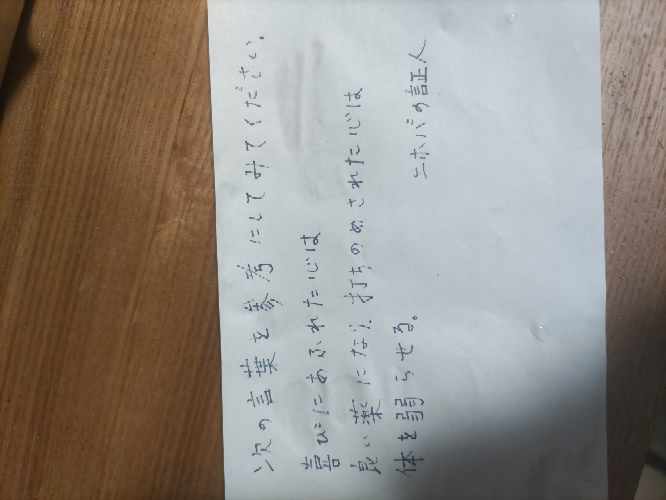 次の言葉を参考にしてみてください。
喜びにあふれた心は
良い薬になり、打ちのめされた心は
体を弱らせる。
エホバの証人